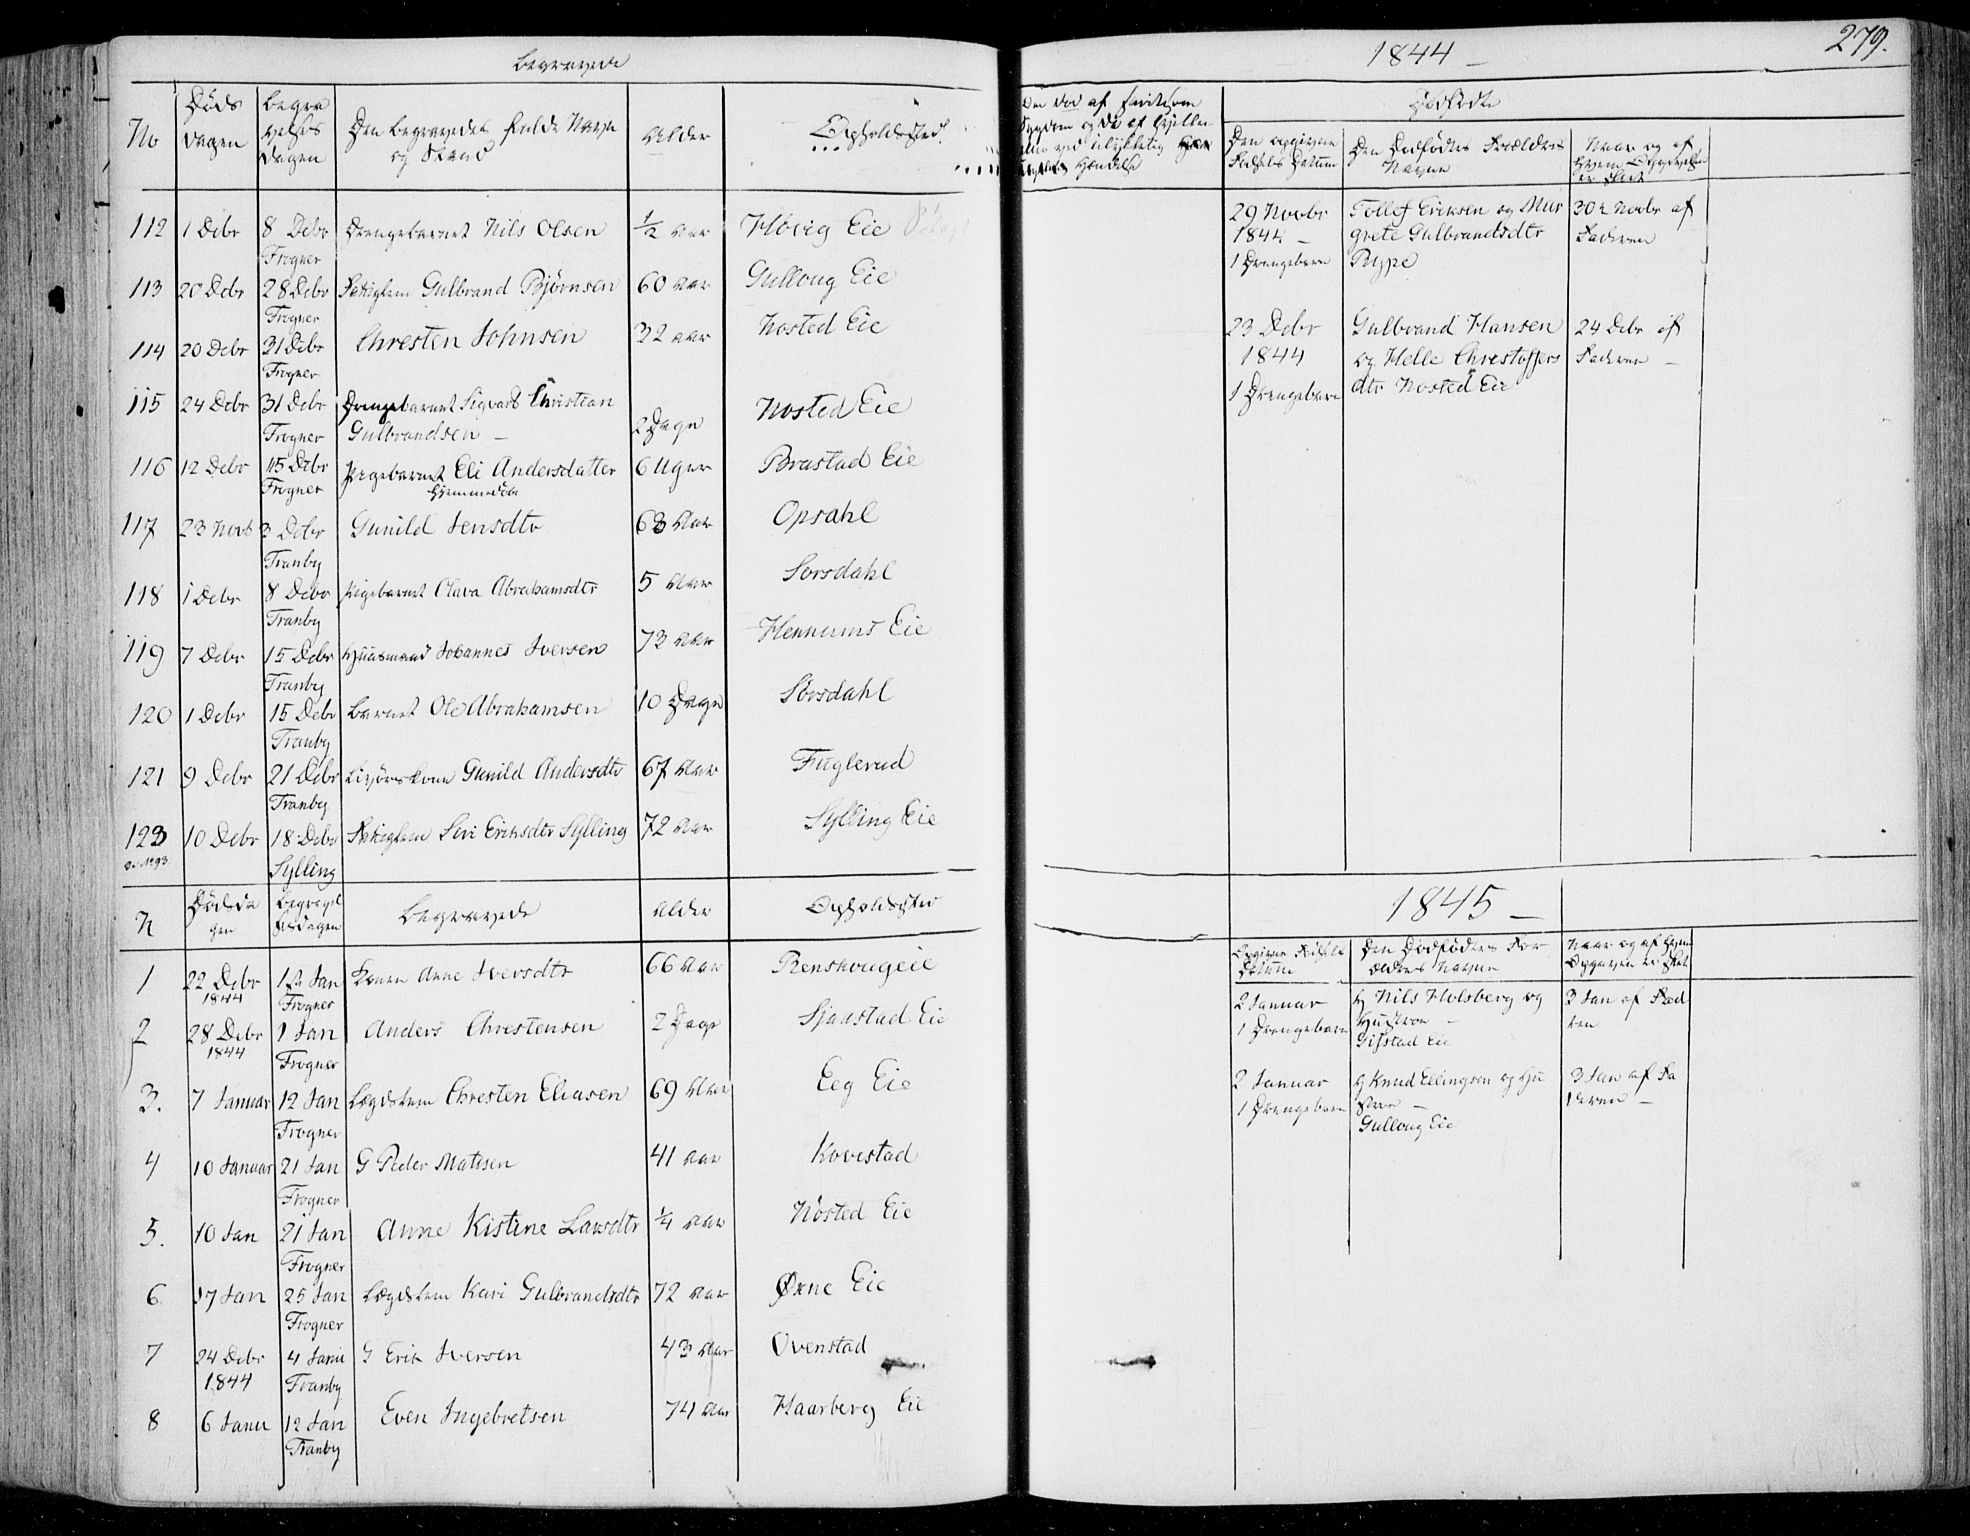 Begravede
No
Døds
dagen
Begra
velses
Dagen
Den Begravedes fulde Navn
og Stand
Alder
Opholdssted
112 1 Debr 8 Debr Drengebarnet Nils Olsen 1/2 Aar Høvig Eie
Frogner
113 20 Debr 28 Debr Fattiglem Gulbrand Bjørnsen 60 Aar Gulloug Eie
Frogner
114 20 Debr 31 Debr Christen Johnsen 32 aar Nøsted Eie
Frogner
115 24 Debr 31 Debr Drengebarnet Sigvart Christian
Frogner Gulbrandsen – 2 Dage Nøsted Eie
116 12 Debr 15 Debr Pigebarnet Eli Andersdatter 6 Uger Brastad Eie
Frogner Hjemmedøbt
117 23 Novb 3 Debr Gunild Jensdtr 63 Aar Opsahl
Tranby
118 1 Debr 8 Debr Pigebarnet Olava Abrahamsdtr 5 Aar Sørsdahl
Tranby
119 7 Debr 15 Debr Huusmand Johannes Iversen 73 Aar Hennums Eie
Tranby
120 1 Debr 15 Debr Barnet Ole Abrahamsen 10 Dage Sørsdahl
Tranby
121 9 Debr 21 Debr Gunild Andersdtr 67 Aar Fuglerud
Tranby
123 10 Debr 18 Debr Fattiglem Siri Eriksdtr Sylling 72 Aar Sylling Eie
Sylling
N Dødsda
gen
Begravel
sesdagen
Begravede
Alder
Opholdssted
1 22 Debr 12 Jan Konen Anne Iversdtr 66 Aar Renskougeie
1844 Frogner
2 28 Debr 1 Jan Anders Christensen 2 Dage Sjaastad Eie
1844 Frogner
3. 7 Januar 12 Jan Lægdslem Chresten Eliasen 69 Aar Eeg Eie
Frogner
4 10 Januar 21 Jan G Peder Matisen 41 Aar Kovestad
Frogner
5. 10 Jan 21 Jan Anne Kistine Larsdtr 1/4 Aar Nøsted Eie
Frogner
6 17 Jan 25 Jan Lægdslem Kari Gulbrandsdtr 72 Aar Øxne Eie
Frogner
7 24 Debr 4 Janu G Erik Iversen 43 Aar Ovenstad
1844 Tranby
8 6 Janu 12 Jan Even Ingebretsen 74 Aar Haarberg Eie
Tranby
1844 –
279.
Dødfødte
Den opgivne
Fødsels Datum
Den Dødfødtes Forældres
Navne
Naar og af
Hvem Opgivelsen
er skeet
29 Novbr Tollef Eriksen og Mar 30t Novbr af
1844 – grete Gulbrandsdtr Faderen
1 Drengebarn Rype
23 Debr Gulbrand Hansen 24 Debr af
1844 og Helle Christoffers Faderen –
1 Drengebarn dtr Nøsted Eie
1845 –
Opgivne Fødsels
Datum
Den Dødfødtes For
ældres Navne
Naar og af Hvem
Opgaven er skeet
2 Januar G Nils Holsberg og 3 Jan af Fad
1 Drengebarn Hustroe – ren
Gifstad Eie
2 Januar G Knud Ellingsen og Hu 3 Jan af Fa
1 Drengebarn stroe – deren –
Gulloug Eie